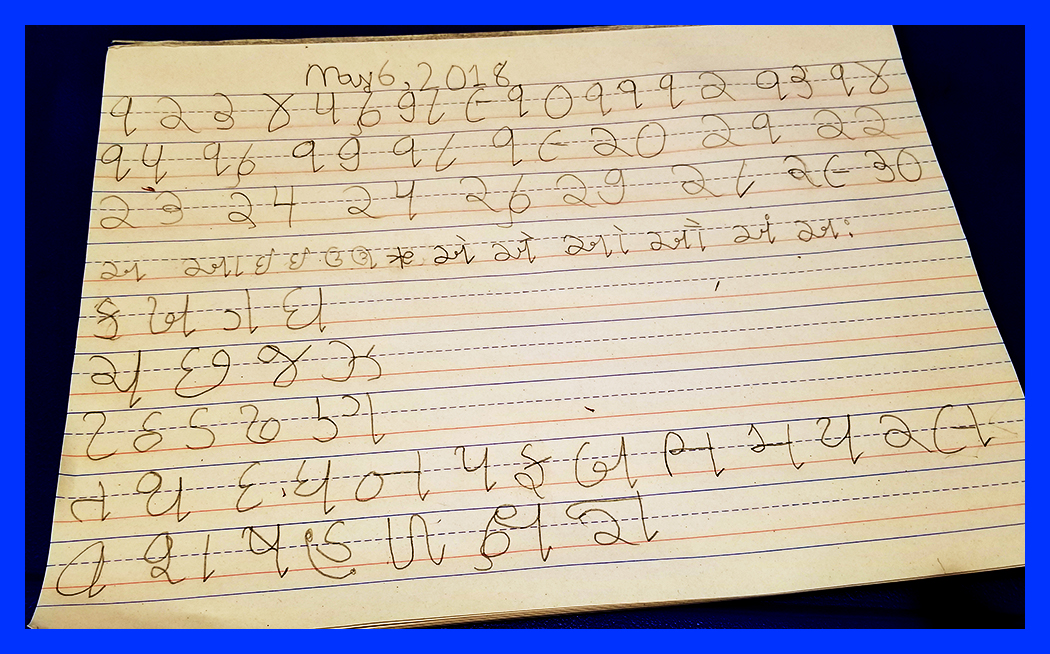 May 6, 2018
૧ ૨ ૩ ૪ ૫ ૬ ૭ ૮ ૯ ૧૦ ૧૧ ૧૨ ૧૩ ૧૪
૧૫ ૧૬ ૧૭ ૧૮ ૧૯ ૨૦ ૨૧ ૨૨
૨૩ ૨૪ ૨૫ ૨૬ ૨૭ ૨૮ ૨૯ ૩૦
અ આ ઇ ઈ ઉ ઊ * એ ઐ ઓ ઔ અં અઃ
ક ખ ગ ઘ
ચ છ જ ઝ
ટ ઠ ડ ઢ ણ
ત થ દ ધ ન પ ફ બ ભ મ ય ર લ
વ શ ષ હ ળ ક્ષ જ્ઞ